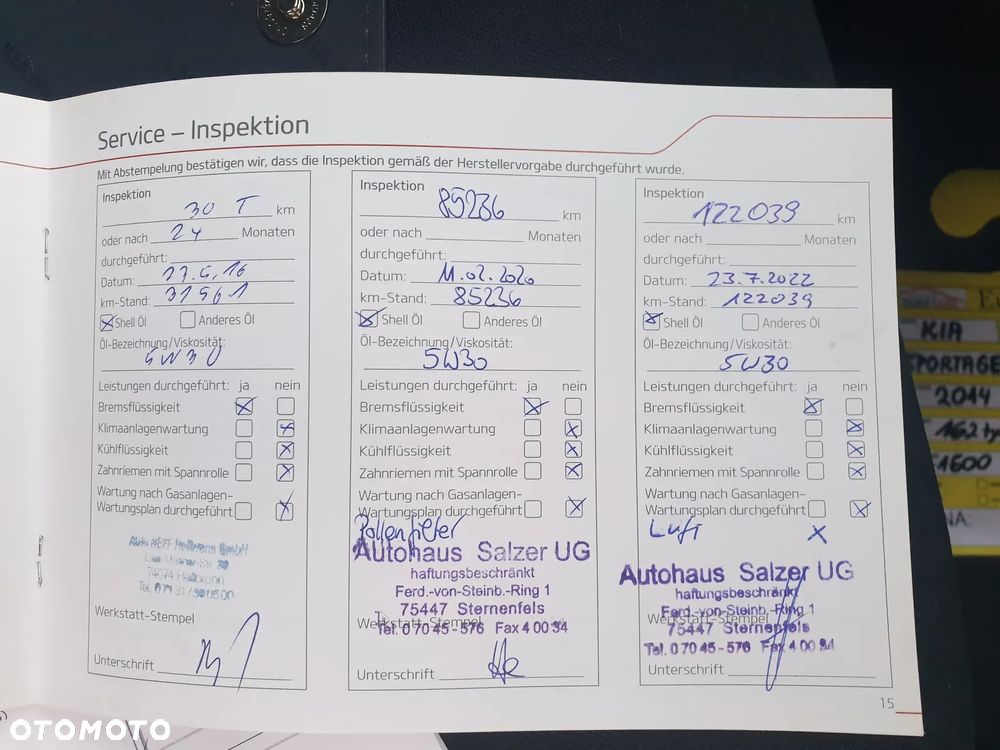 Service – Inspektion
Mit Abstempelung bestätigen wir, dass die Inspektion gemäß der Herstellervorgabe durchgeführt wurde.
Inspektion
30 T km
oder nach 24 Monaten
durchgeführt:
Datum: 27.5.16
km-Stand: 31561
Shell Öl Anderes Öl
Öl-Bezeichnung/Viskosität:
5W30
Leistungen durchgeführt: ja nein
Bremsflüssigkeit
Klimaanlagenwartung
Kühlflüssigkeit
Zahnriemen mit Spannrolle
Wartung nach Gasanlagen-
Wartungsplan durchgeführt
74074
Werkstatt-Stempel
Unterschrift
Inspektion
85236 km
oder nach Monaten
durchgeführt:
Datum: 11.02.2020
km-Stand: 85236
Shell Öl Anderes Öl
Öl-Bezeichnung/Viskosität:
5W30
Leistungen durchgeführt: ja nein
Bremsflüssigkeit
Klimaanlagenwartung
Kühlflüssigkeit
Zahnriemen mit Spannrolle
Wartung nach Gasanlagen-
Wartungsplan durchgeführt
Pollenfilter
Autohaus Salzer UG
haftungsbeschränkt
Ferd.-von-Steinb.-Ring 1
75447 Sternenfels
Werkstatt-Stempel
Tel. 0 70 45 - 576 Fax 4 00 34
Unterschrift
Inspektion
122039 km
oder nach Monaten
durchgeführt:
Datum: 23.7.2022
km-Stand: 122039
Shell Öl Anderes Öl
Öl-Bezeichnung/Viskosität:
5W30
Leistungen durchgeführt: ja nein
Bremsflüssigkeit
Klimaanlagenwartung
Kühlflüssigkeit
Zahnriemen mit Spannrolle
Wartung nach Gasanlagen-
Wartungsplan durchgeführt
Luft x
Autohaus Salzer UG
haftungsbeschränkt
Ferd.-von-Steinb.-Ring 1
Werkstatt-Stempel
75447 Sternenfels
Tel. 0 70 45 - 576 Fax 4 00 34
Unterschrift
15
KIA
PORTAGE
2014
162 ty
1600
NA:
OTOMOTO